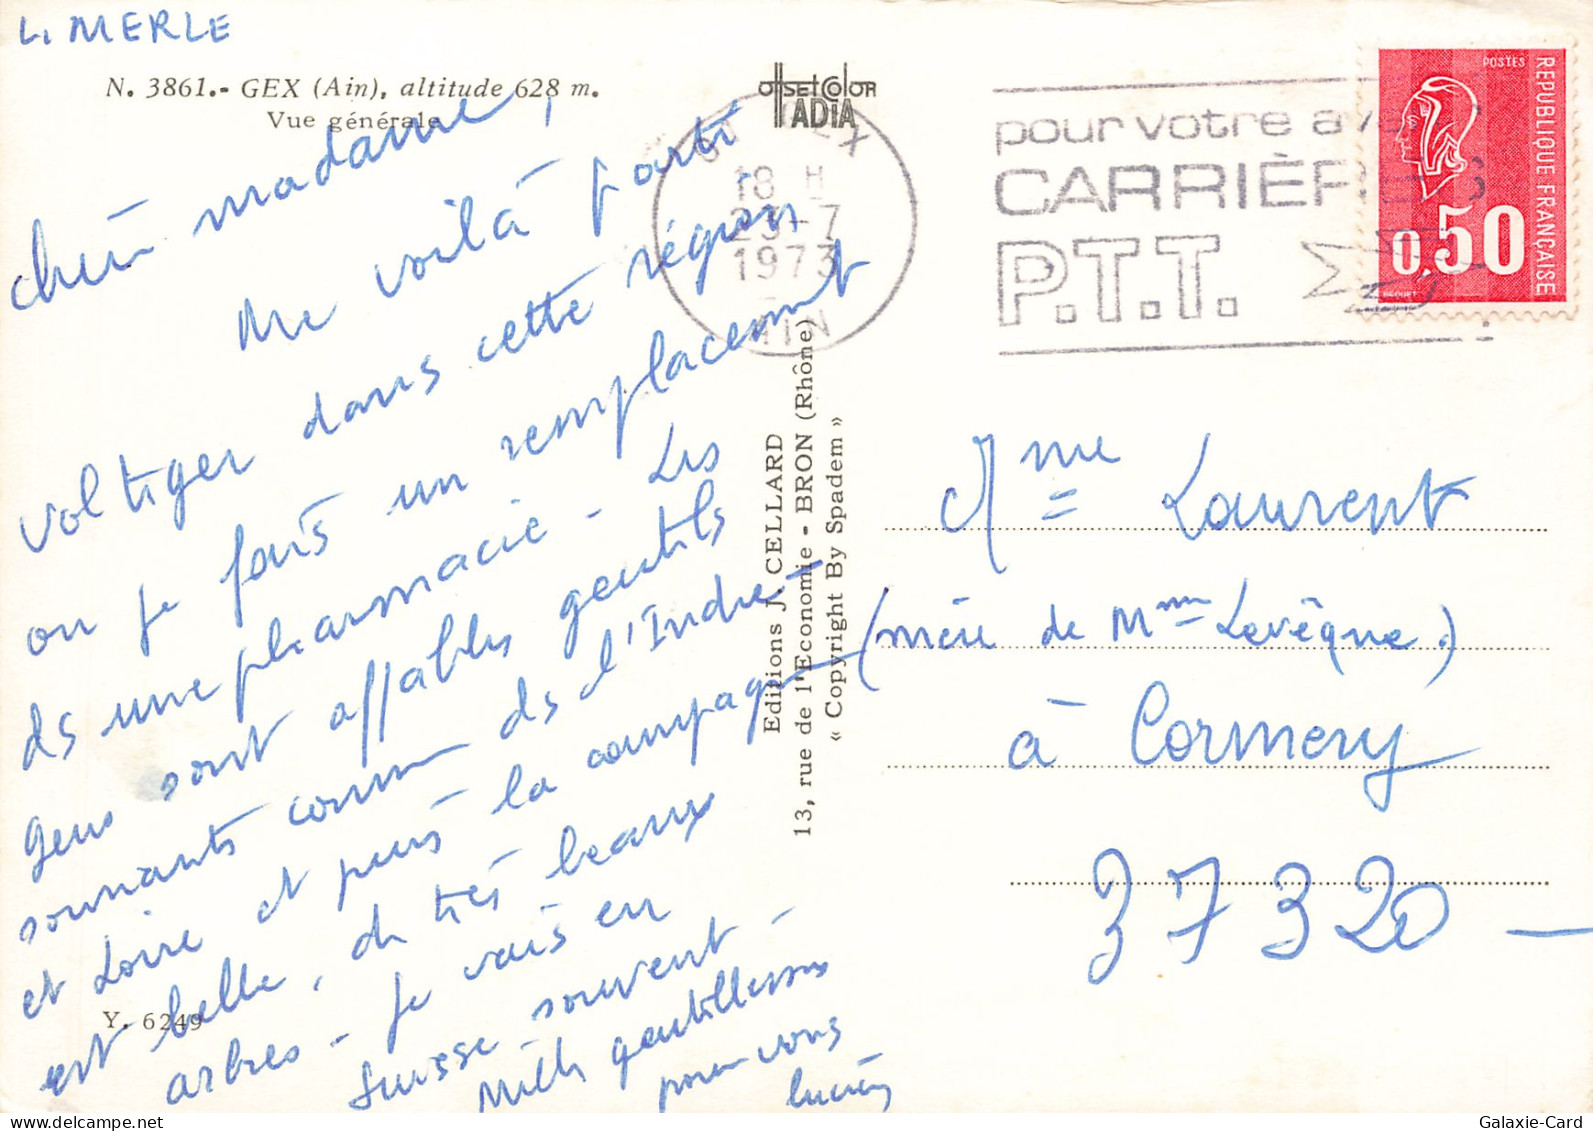 L. MERLE
N. 3861.- GEX (Ain), altitude 628 m.
Vue générale
offsetcolor
IADIA
18 H
23-7
1973
AIN
pour votre
CARRIÈRE
P.T.T.
POSTES
REPUBLIQUE FRANÇAISE
0,50
BEQUET
chère madame,
Me voilà parti
voltiger dans cette région
ou je fais un remplacement
ds une pharmacie - Les
gens sont affables gentils
souriants comme ds l'Indre-
et Loire et puis la campagne
est belle, de très beaux
arbres - je vais en
Suisse souvent -
Mille gentillesses
pour vous
Lucien
Y. 6249
Editions J. CELLARD
13, rue de l'Economie - BRON (Rhône)
« Copyright By Spadem »
Mme Laurent
(mère de Mme Levêque.)
à Cormery
37320 -
Galaxie-Card